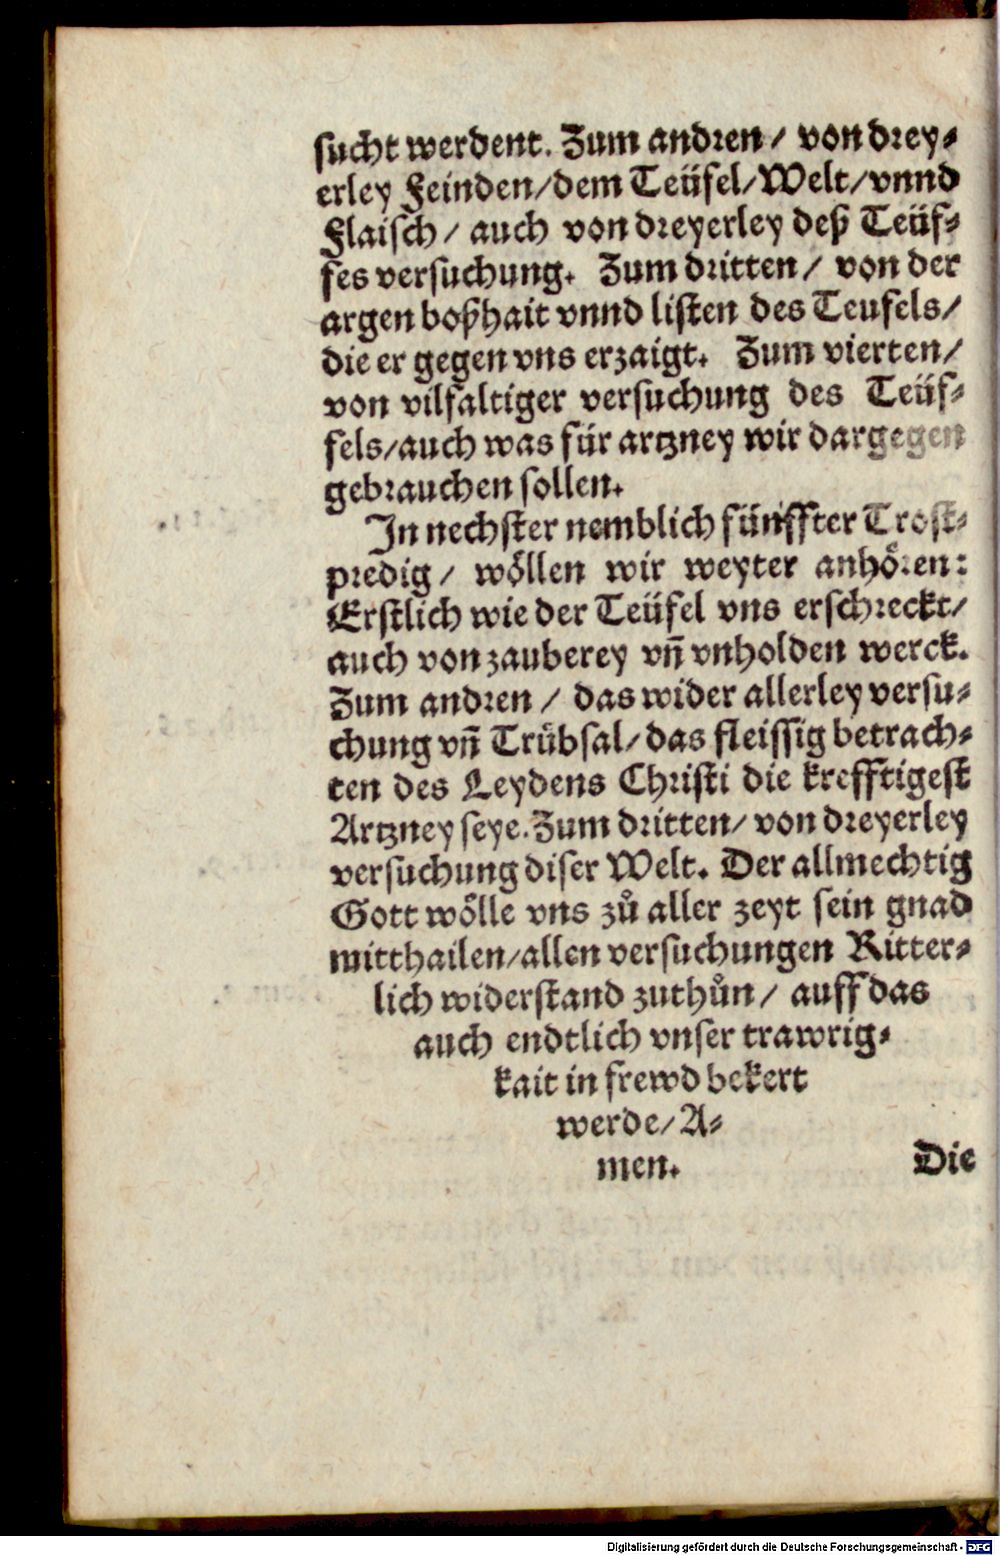 sucht werdent. Zum andren / von drey⸗
erley Feinden/dem Teüfel/Welt/vnnd
Flaisch / auch von dreyerley deß Teüf⸗
fes versuchung. Zum dritten / von der
argen boßhait vnnd listen des Teufels/
die er gegen vns erzaigt. Zum vierten/
von vilfaltiger versuchung des Teüf⸗
fels/auch was für artzney wir dargegen
gebrauchen sollen.
In nechster nemblich fünffter Trost⸗
predig / wöllen wir weyter anhören:
Erstlich wie der Teüfel vns erschreckt/
auch von zauberey vñ vnholden werck.
Zum andren / das wider allerley versu⸗
chung vñ Trübsal/das fleissig betrach⸗
ten des Leydens Christi die krefftigest
Artzney seye. Zum dritten/von dreyerley
versuchung diser Welt. Der allmechtig
Gott wölle vns zů aller zeyt sein gnad
mitthailen/allen versuchungen Ritter⸗
lich widerstand zuthůn / auff das
auch endtlich vnser trawrig⸗
kait in frewd bekert
werde/A⸗
men.
Die
Digitalisierung gefördert durch die Deutsche Forschungsgemeinschaft - DFG